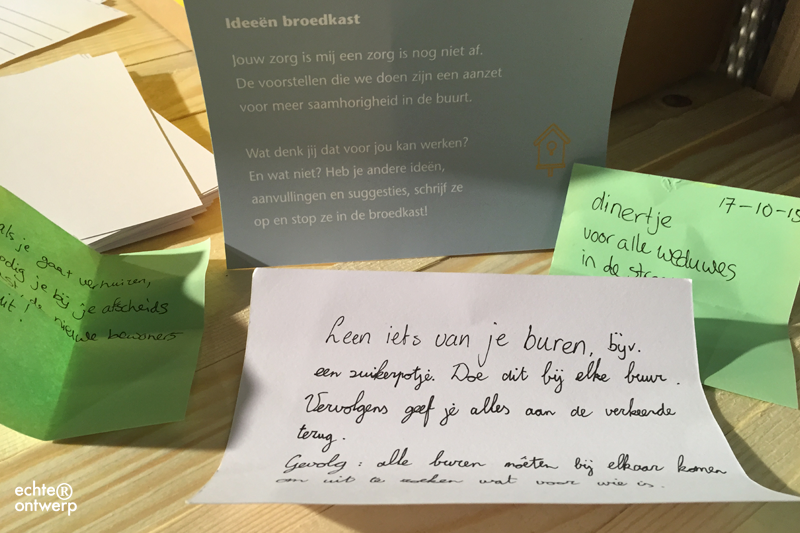 Ideeën broedkast
Jouw zorg is mij een zorg is nog niet af.
De voorstellen die we doen zijn een aanzet
voor meer saamhorigheid in de buurt.
Wat denk jij dat voor jou kan werken?
En wat niet? Heb je andere ideën,
aanvullingen en suggesties, schrijf ze
op en stop ze in de broedkast!
als je gaat verhuizen,
nodig je bij je afscheids
de nieuwe bewoners
uit!
17-10-15
dinertje
voor alle weduwes
in de
Leen iets van je buren, bijv.
een suikerpotje. Doe dit bij elke buur.
Vervolgens geef je alles aan de verkeerde
terug.
Gevolg: alle buren moeten bij elkaar komen
om uit te zoeken wat voor wie is.
echte®
ontwerp